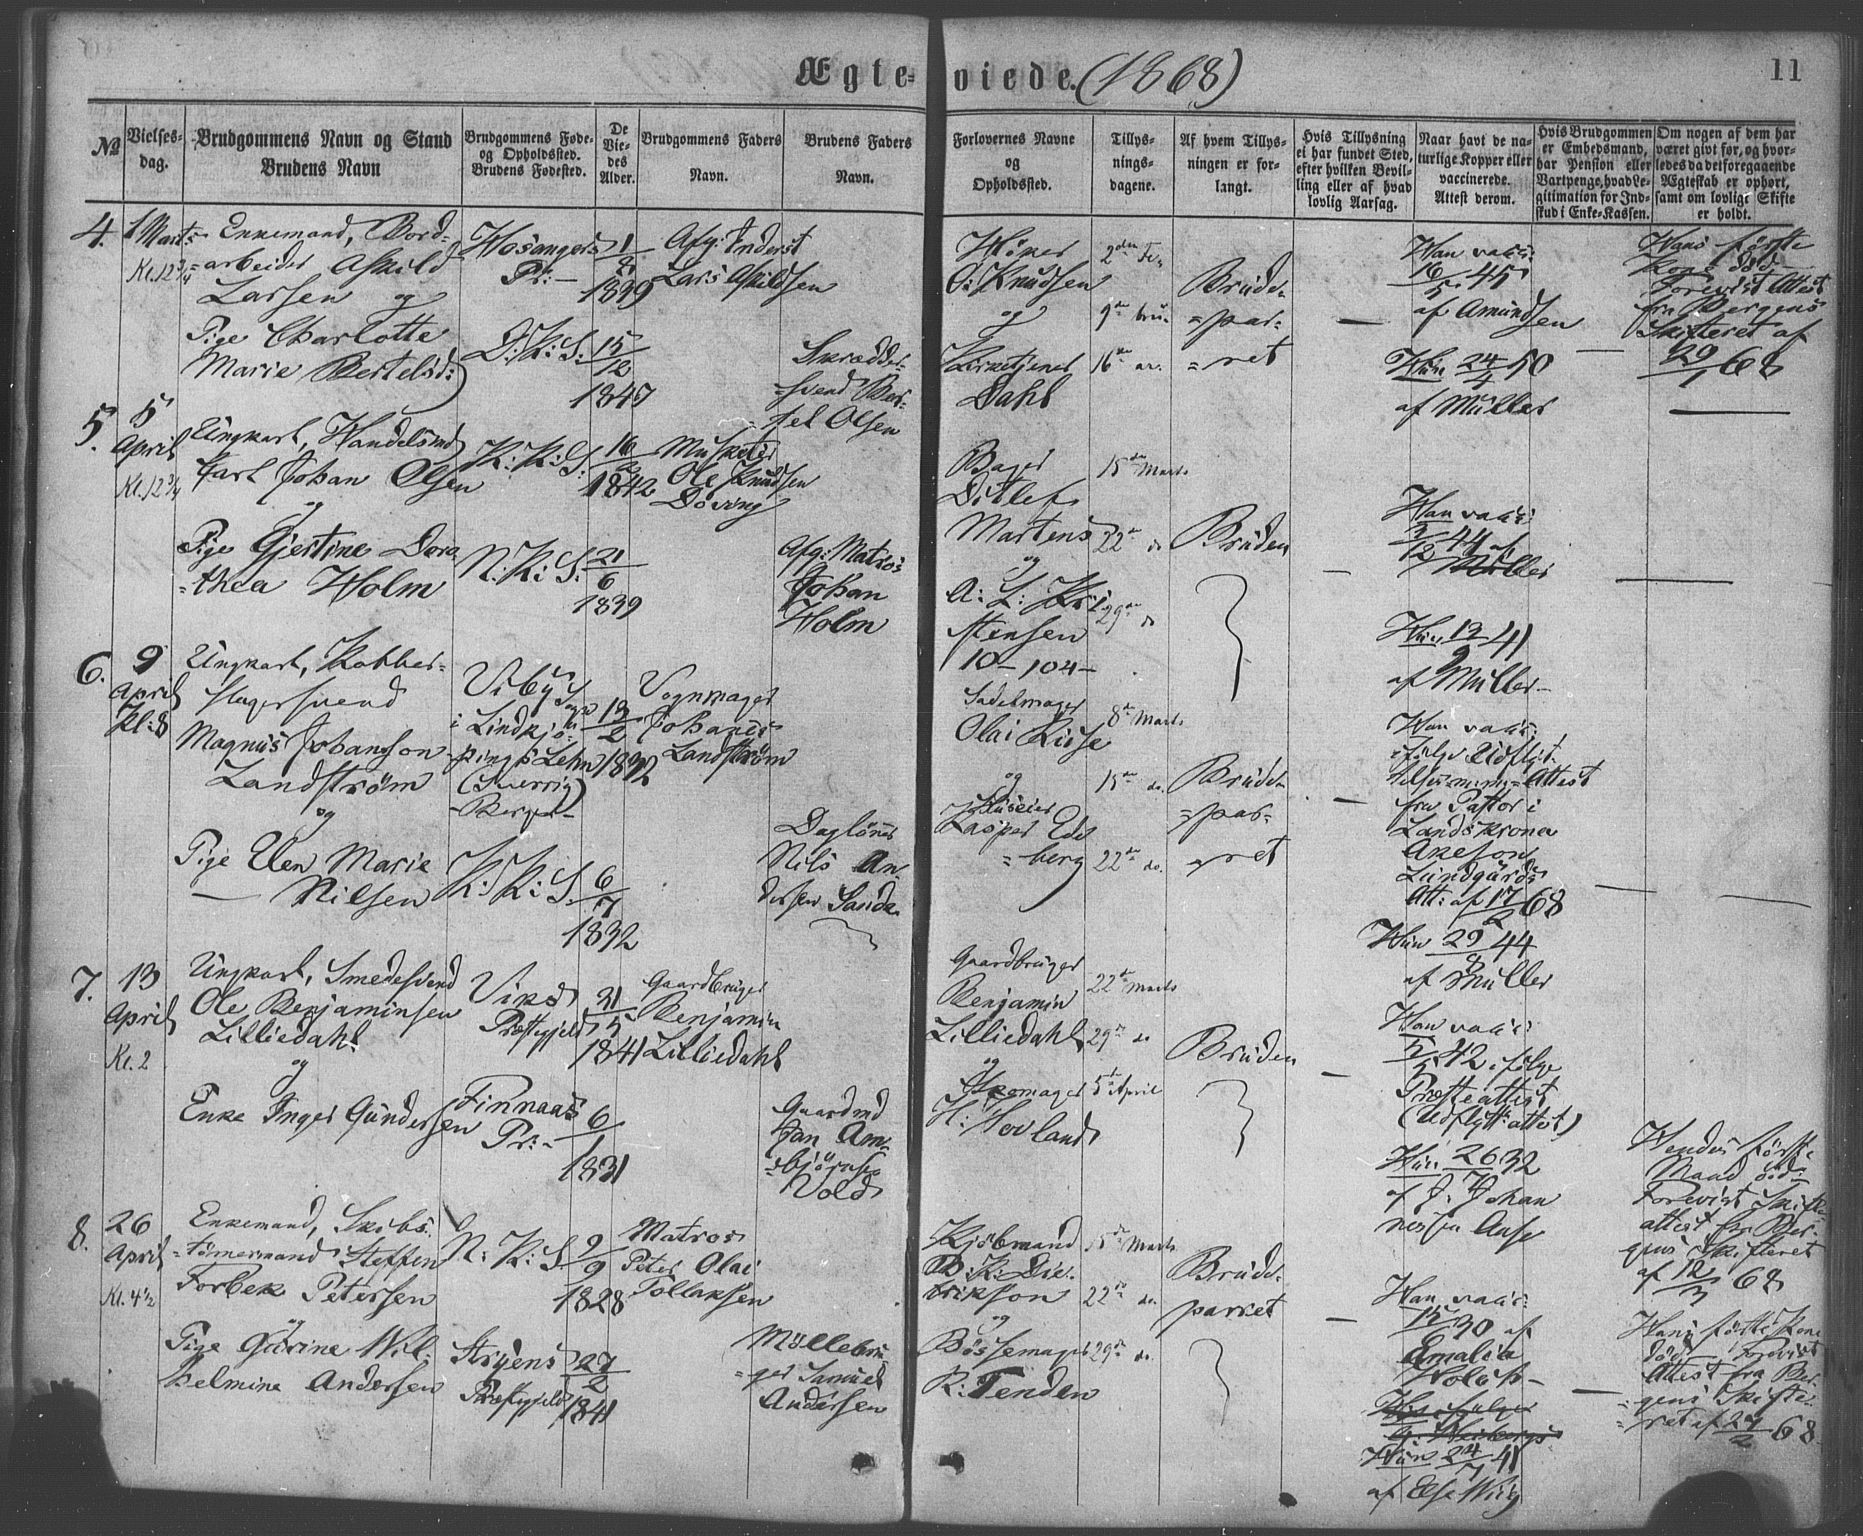 Ægte-viede. (1868)
11
№
Vielses-
dag.
Brudgommens Navn og Stand
Brudens Navn
Brudgommens Føde-
og Opholdssted.
Brudens Fødested.
De
Vie-
des
Alder.
Brudgommens Faders
Navn.
Brudens Faders
Navn.
Forlovernes Navne
og
Opholdssted.
Tillys-
nings-
dagene.
Af hvem Tillys-
ningen er for-
langt.
Hvis Tillysning
ei har fundet Sted,
efter hvilken Bevil-
ling eller af hvad
lovlig Aarsag.
Naar havt de na-
turlige Kopper eller
vaccinerede.
Attest derom.
Hvis Brudgommen
er Embedsmand,
har Pension eller
Vartpenge, hvad Le-
gitimation for Ind-
skud i Enke-Kassen.
Om nogen af dem har
været givt før, og hvor-
ledes da det foregaaende
Ægteskab er ophørt,
samt om lovligt Skifte
er holdt.
4.
1 Marts
Kl. 12 3/4
Enkemand, Bord-
=arbeider Askild
Larsen og
Pige Charlotte
Marie Bertelsd:
Hosangers
Pr:-
D: K: S:
1/8
1839
15/12
1847
Afg: Inderst
Lars Askildsen
Skrædder-
svend Ber-
tel Olsen
Høker
O: Knudsen
og
Kirketjener
Dahl
2den Fe-
9de bru-
16de ar.
Brude-
=par-
=ret
Han vacc:
16/5 45
af Amundsen
Hun 24/4 50
af Müller
Hans første
Kone død
Forevist Attest
fra Bergens
Skifteret af
29/1 68
5.
5
April
Kl. 12 3/4
Ungkarl, Handelsmd
Carl Johan Olsen
og
Pige Gjertine Doro
=thea Holm
K: K: S:
N: K: S:
16
1842
21/6
1839
Musketer
Ole Knudsen
Døving
Afg: Matros
Johan
Holm
Bager
Ditlef
Martens
og
A: L: Kri
stensen
10-104-
15de Marts
22de do
29de do
Bruden
Han vacc:
3/12 44 af
Müller
Hun 13/9 41
af Müller-
6.
9
April
Kl: 8
Ungkarl, Kobber-
slagersvend
Magnus Johansson
Landstrøm
og
Pige Elen Marie
Nilsen
Viby Sogn
i Lindkjø-
pings Lehn
(Sverrig)
-Bergen-
K: K: S.
13/2
1832
6/7
1832
Vognmager
Johannes
Landstrøm
Dagløner
Nils An-
dersen Sanda
Sadelmager
Olai Riise
og
Huseier
Kasper Ed
=berg
8de Marts
15de do.
22de do.
Brude-
=par-
=ret
Han vacc:
ifølge Udflyt-
telses=Attest
fra Pastor i
Landskrona
Akeson
Lundgårds
Att: af 17/2 68
Hun 29/8 44
af Müller
7.
13
April
Kl. 2
Ungkarl, Smedesvend
Ole Benjaminsen
Lilliedahl
og
Enke Inger Gundersen
Viks
Præstegjeld
Finnaas
Pr:-
21/5
1841
6/1
1831
Gaardbruger
Benjamin
Lilliedahl
Gaardmd
Jan Am-
=bjørnsen
Vold
Gaardbruger
Benjamin
Lilliedahl
og
Skomager
H: Hovland
22de Marts
29de do
5te April
Bruden
Han vacc:
42 ifølge
Præsteattest
(Udflytt: attest)
Hun 26/7 32
af J. Johan
nessen Aase
Hendes første
Mand død
Forevist Skifte
attest fra Ber-
gens Skifteret
af 12/3 68
8.
26
April
Kl. 4 1/2
Enkemand, Skibs-
=tømermand Steffen
Torbek Petersen
og
Pige Gurine Wil-
helmine Andersen
N: K: S.
Stryens
Præstegjeld
9/9
1828
27/2
1841
Matros
Peter Olai
Tollaksen
Møllebru
=ger Samuel
Andersen
Kjøbmand
D: K: Die-
drikson
og
Bøssemager
R: Tenden
15de Marts
22de do.
29de do.
Brude-
parret
Han vacc:
15/ 30 af
Amalia
Hun 24/7 41
af Else Wiig
Hans første Kone
død. Forevist
Attest fra Ber-
=gens Skifte-
=ret af 24/2 68